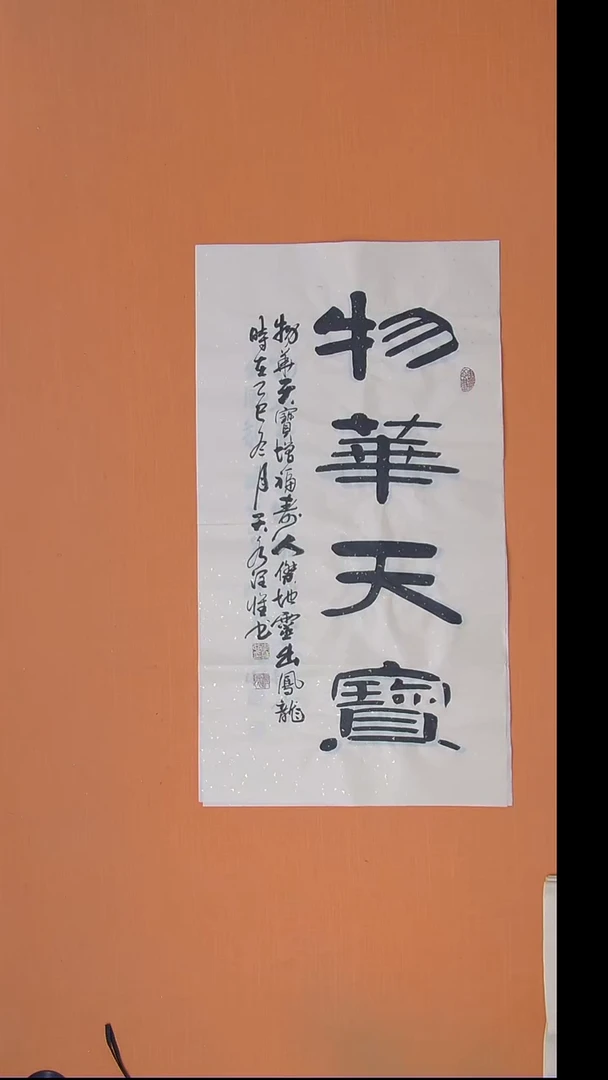 物華天寶
物華天寶增福壽人傑地靈出鳳龍
時在乙巳冬月天水 書